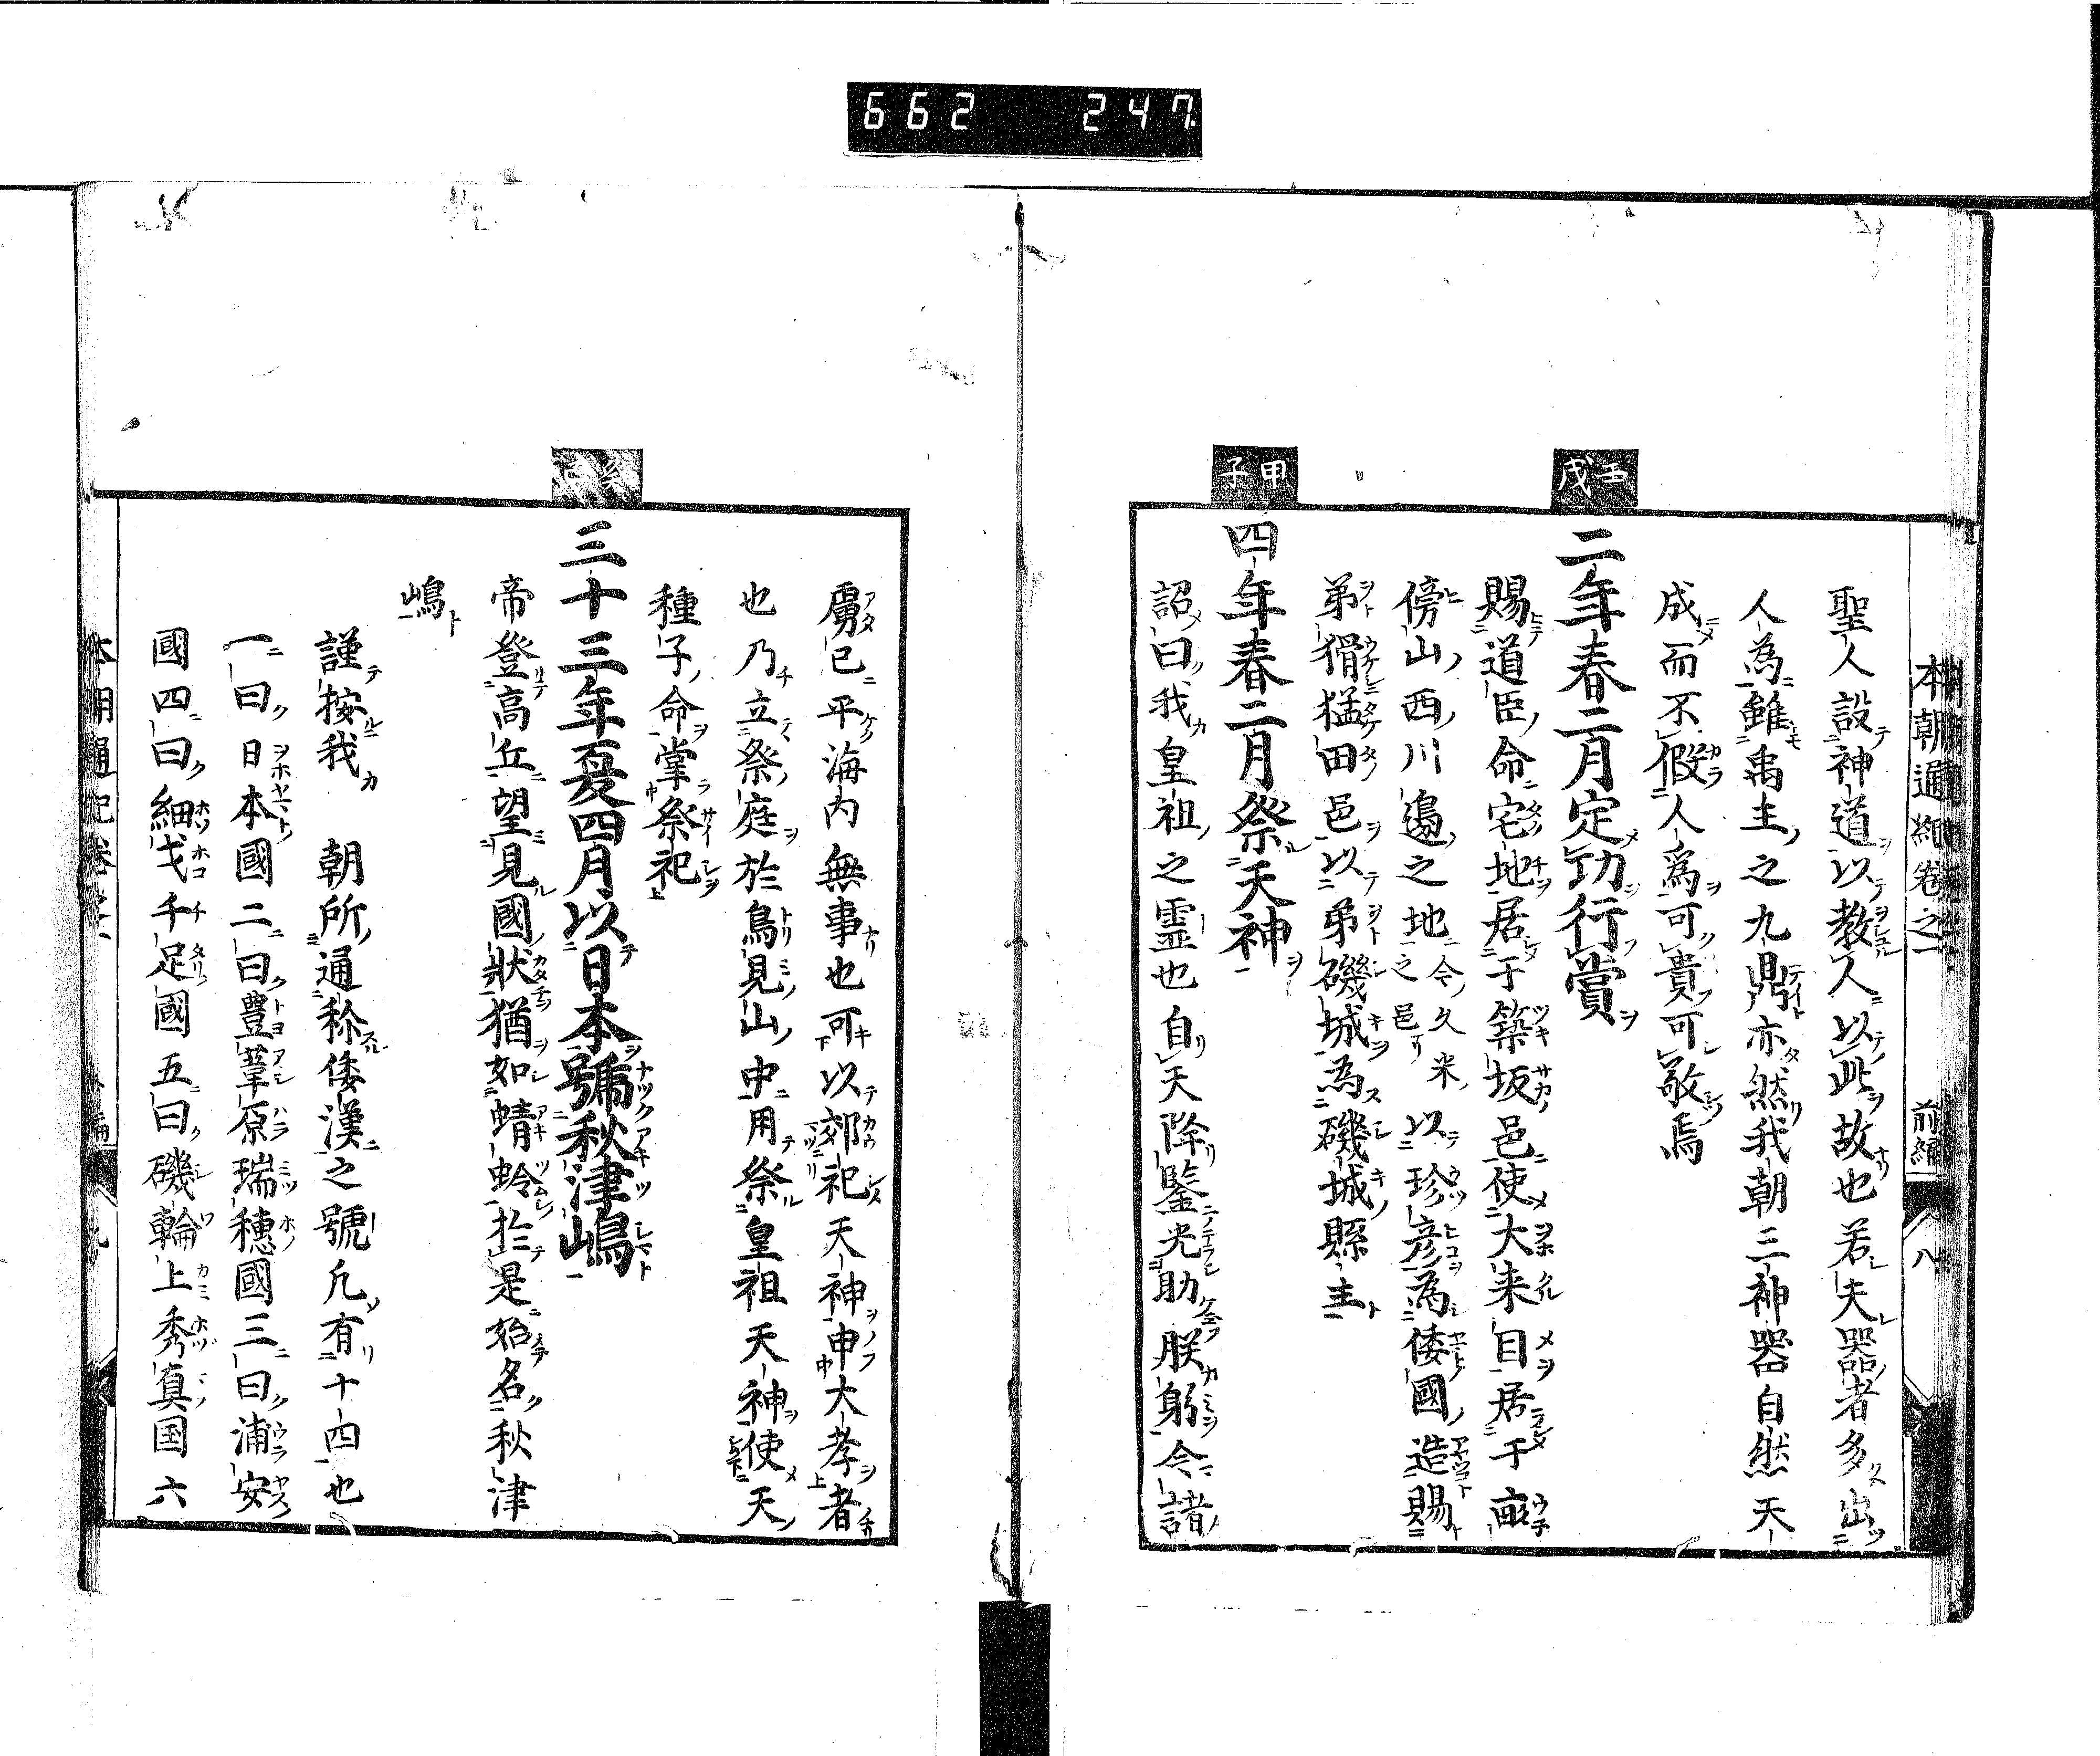 662 247.
本朝通紀卷之一 前編 八
聖人設神道以教人以此故也若夫器者多出
人為雖禹主之九鼎亦然我朝三神器自然天
成而不假人為可貴可敬焉
壬戌
二年春二月定功行賞
賜道臣命宅地居于築坂邑使大来目居于畝
傍山西川邊之地今久米之邑以珍彦為倭國造賜
弟猾猛田邑以弟磯城為磯城縣主
甲子
四年春二月祭天神
詔曰我皇祖之霊也自天降鑒光助朕躬今諸
虜已平海内無事也可以郊祀天神申大孝者
也乃立祭庭於鳥見山中用祭皇祖天神使天
種子命掌祭祀
三十三年夏四月以日本號秋津嶋
帝登高丘望見國狀猶如蜻蛉於是始名秋津
嶋
謹按我 朝所通称倭漢之號凡有十四也
一曰日本國二曰豊葦原瑞穗國三曰浦安
國四曰細戈千足國五曰磯輪上秀真国六